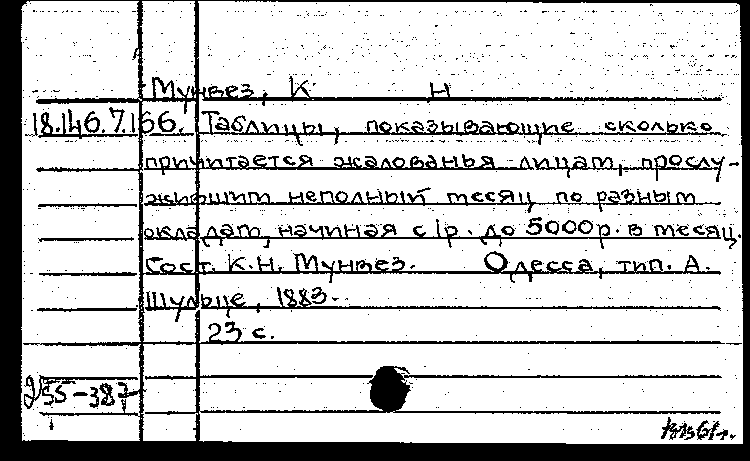 Мунвез, К Н
18.146.7.166. Таблицы, показывающие сколько
причитается жалованья лицам, прослу-
жившим неполный месяц по разным
окладам, начиная с 1р. до 5000р. в месяц.
Сост. К.Н. Мунвез. Одесса, тип. А.
Шульце, 1883.
23 с.
255-387